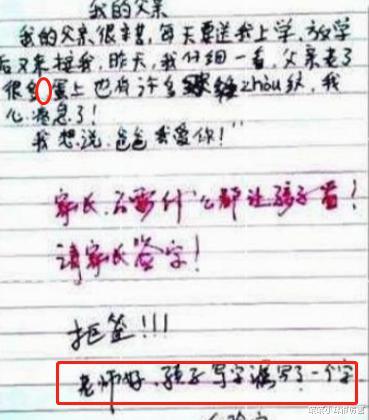 我的父亲
我的父亲很辛苦，每天要送我上学，放学
后又来接我，昨天，我仔细一看，父亲老了
很多，蛋上也有许多zhòu纹，我
心疼急了！
我想说：爸爸我爱你！"
家长，不要什么都让孩子看！
请家长签字！
拒签！！！
老师好，孩子写字漏写了一个字